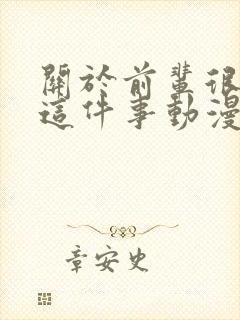 關於前輩很
這件事動漫
章安史